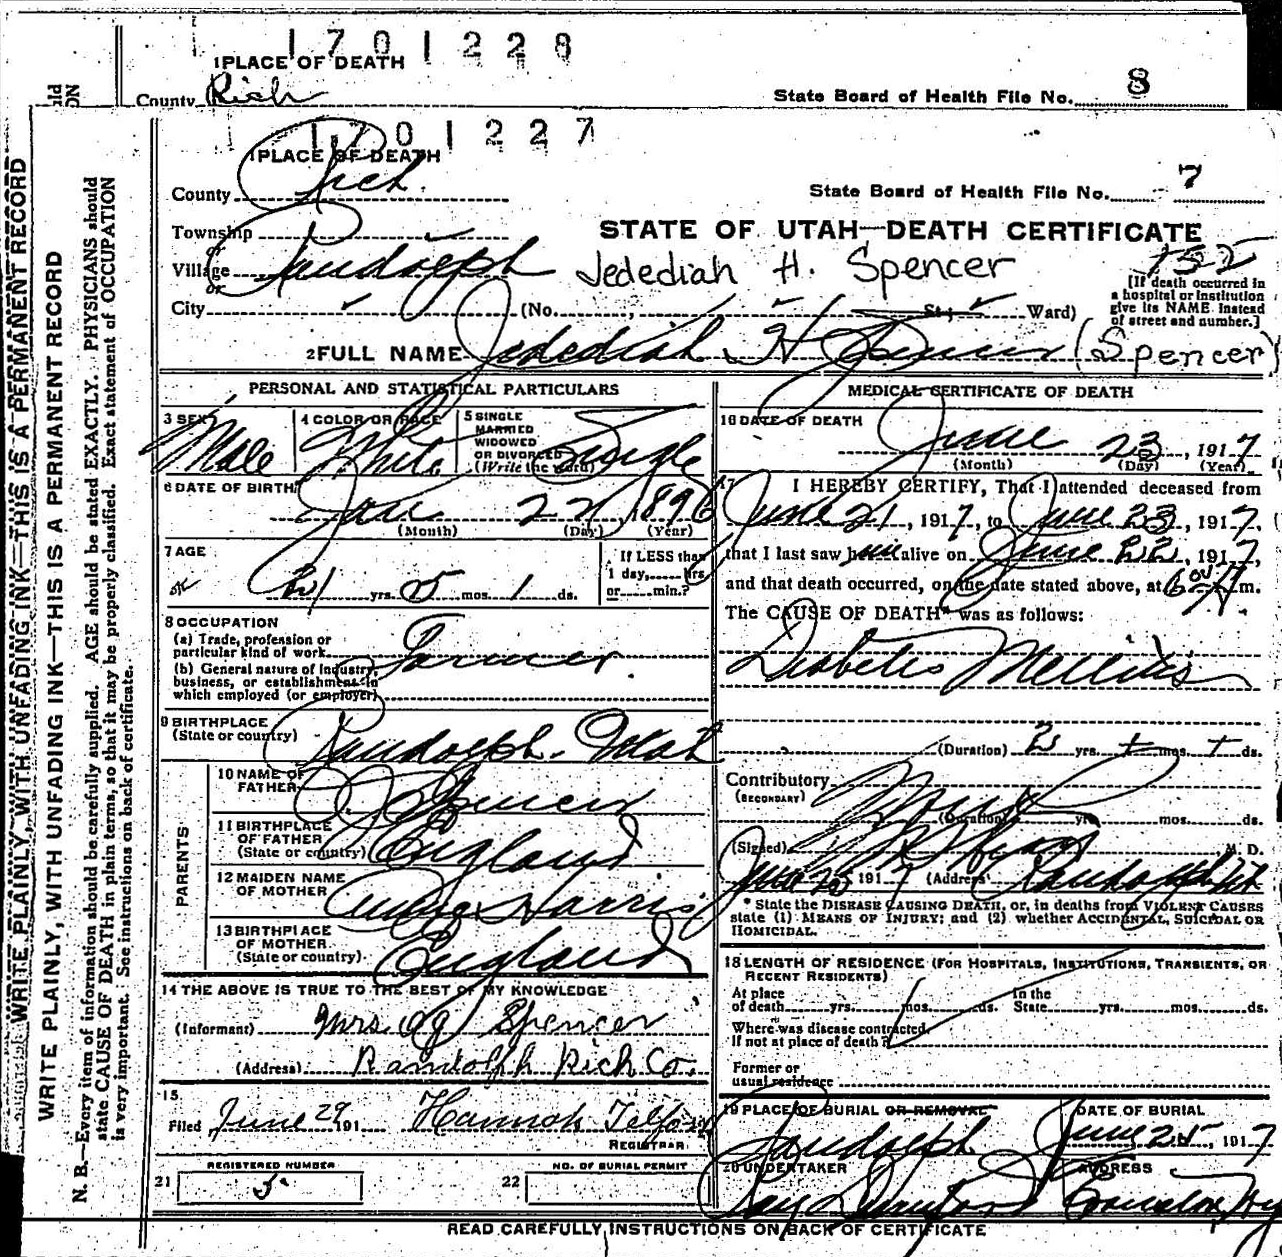 1701228
1 PLACE OF DEATH
County Rich
State Board of Health File No. 8
1701227
1 PLACE OF DEATH
County Rich.
State Board of Health File No. 7
Township
or
Village Randolph
or
City
STATE OF UTAH—DEATH CERTIFICATE
Jedediah H. Spencer
152
[If death occurred in a hospital or institution give its NAME instead of street and number.]
(No. St.; Ward)
2 FULL NAME Jedediah H Spencer (Spencer)
PERSONAL AND STATISTICAL PARTICULARS
3 SEX Male
4 COLOR OR RACE White
5 SINGLE MARRIED WIDOWED OR DIVORCED (Write the word) Single
6 DATE OF BIRTH Jan 22, 1896
(Month) (Day) (Year)
7 AGE
21 yrs. 5 mos. 1 ds.
If LESS than 1 day, hrs. or min.?
8 OCCUPATION
(a) Trade, profession or particular kind of work Farmer.
(b) General nature of industry, business, or establishment in which employed (or employer)
9 BIRTHPLACE
(State or country) Randolph. Utah
PARENTS
10 NAME OF FATHER Spencer
11 BIRTHPLACE OF FATHER (State or country) England
12 MAIDEN NAME OF MOTHER Harris
13 BIRTHPLACE OF MOTHER (State or country) England
14 THE ABOVE IS TRUE TO THE BEST OF MY KNOWLEDGE
(Informant) Mrs Spencer
(Address) Randolph Rich Co.
15
Filed June 29 191 Hannah Telford
REGISTRAR
REGISTERED NUMBER
21 5
NO. OF BURIAL PERMIT
22
MEDICAL CERTIFICATE OF DEATH
16 DATE OF DEATH
June 23, 1917
(Month) (Day) (Year)
17 I HEREBY CERTIFY, That I attended deceased from
June 21, 1917, to June 23, 1917,
that I last saw him alive on June 22, 1917,
and that death occurred, on the date stated above, at 6 m.
The CAUSE OF DEATH* was as follows:
Diabetis Mellitis
(Duration) 2 yrs. + mos. + ds.
Contributory
(SECONDARY)
(Duration) yrs. mos. ds.
(Signed) M. D.
June 25 1917 (Address) Randolph Ut
* State the DISEASE CAUSING DEATH, or, in deaths from VIOLENT CAUSES state (1) MEANS OF INJURY; and (2) whether ACCIDENTAL, SUICIDAL OR HOMICIDAL.
18 LENGTH OF RESIDENCE (FOR HOSPITALS, INSTITUTIONS, TRANSIENTS, OR RECENT RESIDENTS)
At place of death yrs. mos. ds. In the State yrs. mos. ds.
Where was disease contracted, If not at place of death?
Former or usual residence
19 PLACE OF BURIAL OR REMOVAL
Randolph
DATE OF BURIAL
June 25, 1917
20 UNDERTAKER
ADDRESS
Evanston, Wy
READ CAREFULLY INSTRUCTIONS ON BACK OF CERTIFICATE
WRITE PLAINLY, WITH UNFADING INK—THIS IS A PERMANENT RECORD
WRITE PLAINLY, WITH UNFADING INK—THIS IS A PERMANENT RECORD
N. B.—Every item of information should be carefully supplied. AGE should be stated EXACTLY. PHYSICIANS should
state CAUSE OF DEATH in plain terms, so that it may be properly classified. Exact statement of OCCUPATION
is very important. See instructions on back of certificate.